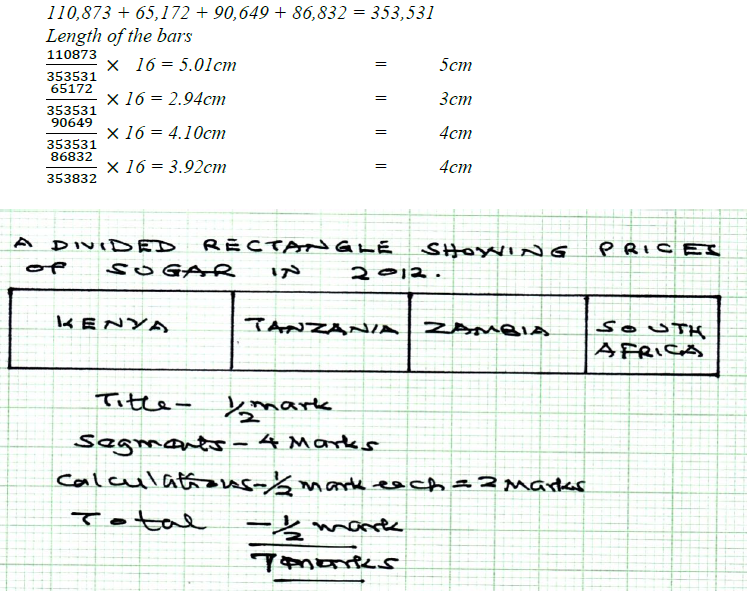 110,873 + 65,172 + 90,649 + 86,832 = 353,531
Length of the bars
110873/353531 × 16 = 5.01cm = 5cm
65172/353531 × 16 = 2.94cm = 3cm
90649/353531 × 16 = 4.10cm = 4cm
86832/353832 × 16 = 3.92cm = 4cm
A DIVIDED RECTANGLE SHOWING PRICES
OF SUGAR IN 2012.
KENYA TANZANIA ZAMBIA SOUTH
AFRICA
Title - 1/2 mark
Segments - 4 Marks
Calculations - 1/2 mark each = 2 Marks
Total - 1/2 mark
7 marks